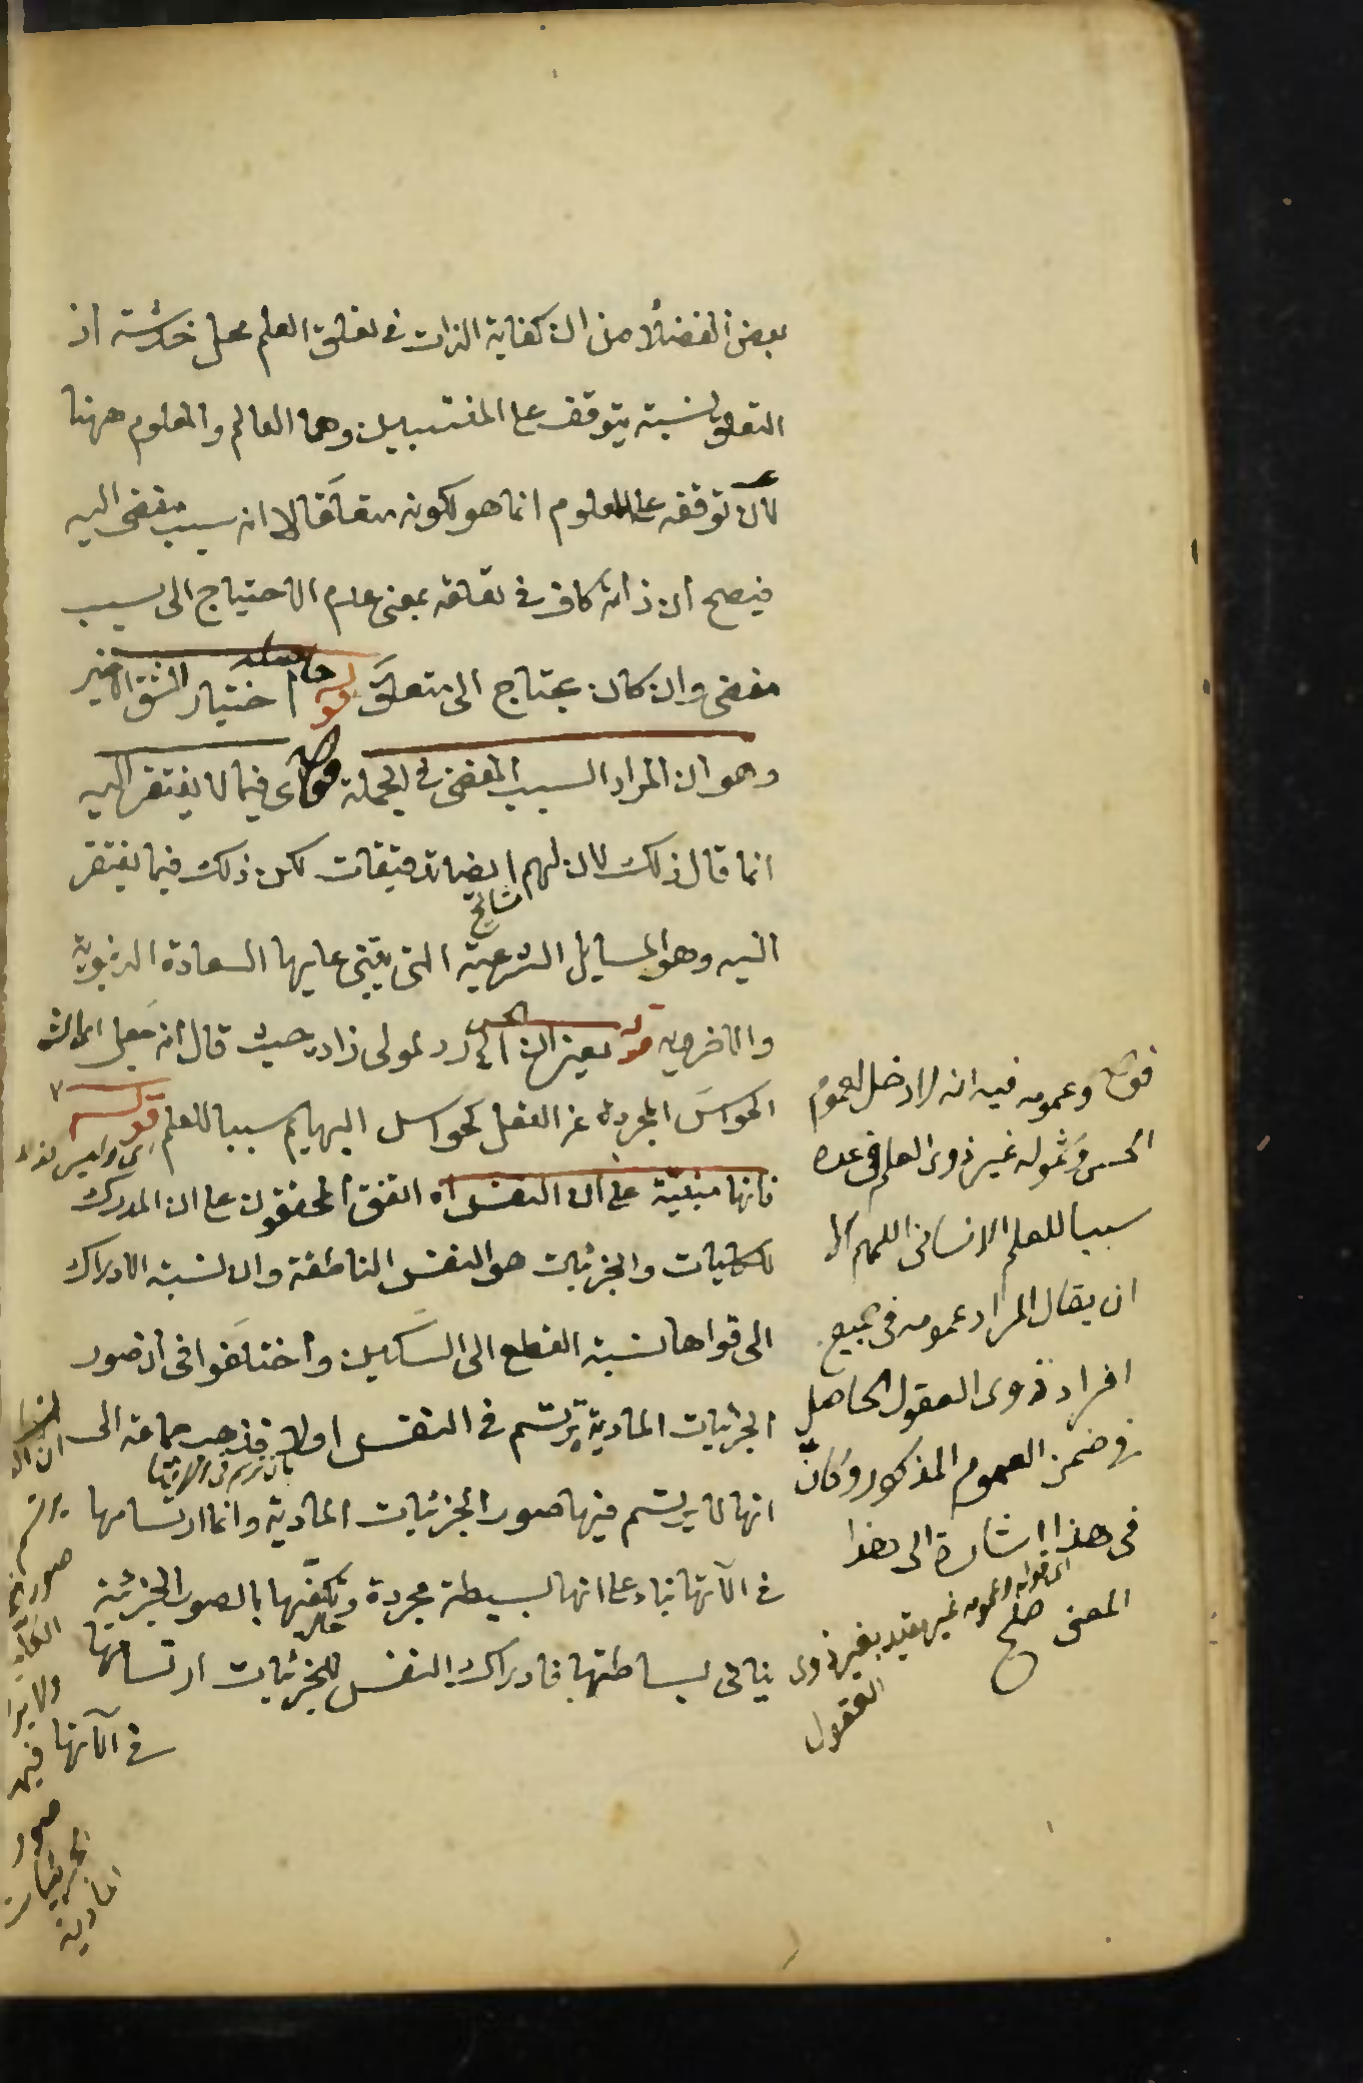 بعض الفضلأ من ان كفاية الذات فى تعلق العلم محل خدشة اذ
التعلق نسبة يتوقف على المنتسبين وهما العالم والمعلوم ههنا
لان توقفه على المعلوم انما هو لكونه متعلَّقا لا انه سبب مفضى اليه
فيصح ان ذاته كاف فى تعلقه بمعنى عدم الاحتياج الى سبب
مفضى وان كان يحتاج الى متعلَّق قوله حاصله اختيار الشق الاخير
وهو ان المراد السبب المفضى فى الجملة قوله اى فيما لا يفتقر اليه
انما قال ذلك لان لهم ايضا تدقيقات لكن ذلك فيما يفتقر
اليه وهو المسايل الشرعية التى يبتنى عليها السعادة الدنيوية
والاخروية قوله يعنى ان الحس رد لمولى زاده حيث قال انه جعل الشارح
الحواسَ المجردة عن العقل كحواس البهايم سببا للعلم قوله
فانها مبنيّة على ان النفس اه اتفق المحققون على ان المدرك
للكليات والجزئيات هو النفس الناطقة وان نسبة الادراك
الى قواها نسبة القطع الى السكين واختلفوا فى ان صور
الجزئيات المادية ترتسم فى النفس اولا فذهب جماعة الى
انها لا يرتسم فيها صور الجزئيات المادية وانما ارتسامها
فى الآتها بناء على انها بسيطة مجردة وتكيّفها بالصور الجزئية
ينافى بساطتها فادراك النفس للجزئيات ارتسامها
فى الآتها
قوله وعمومه فيه انه لا دخل لعموم
الحس وشموله غير ذوى العلم فى عده
سببا للعلم الانسانى اللهم الا
ان يقال المراد عمومه فى جميع
افراد ذوى العقول الحاصل
فى ضمن العموم المذكور وكانّ
فى هذا اشارة الى هذا
المعنى صلح
اى قوله وعمومه غير مقيد بغير ذوى
العقول
يرتسم
صور
فيها
صور
الجزئيات
المادية